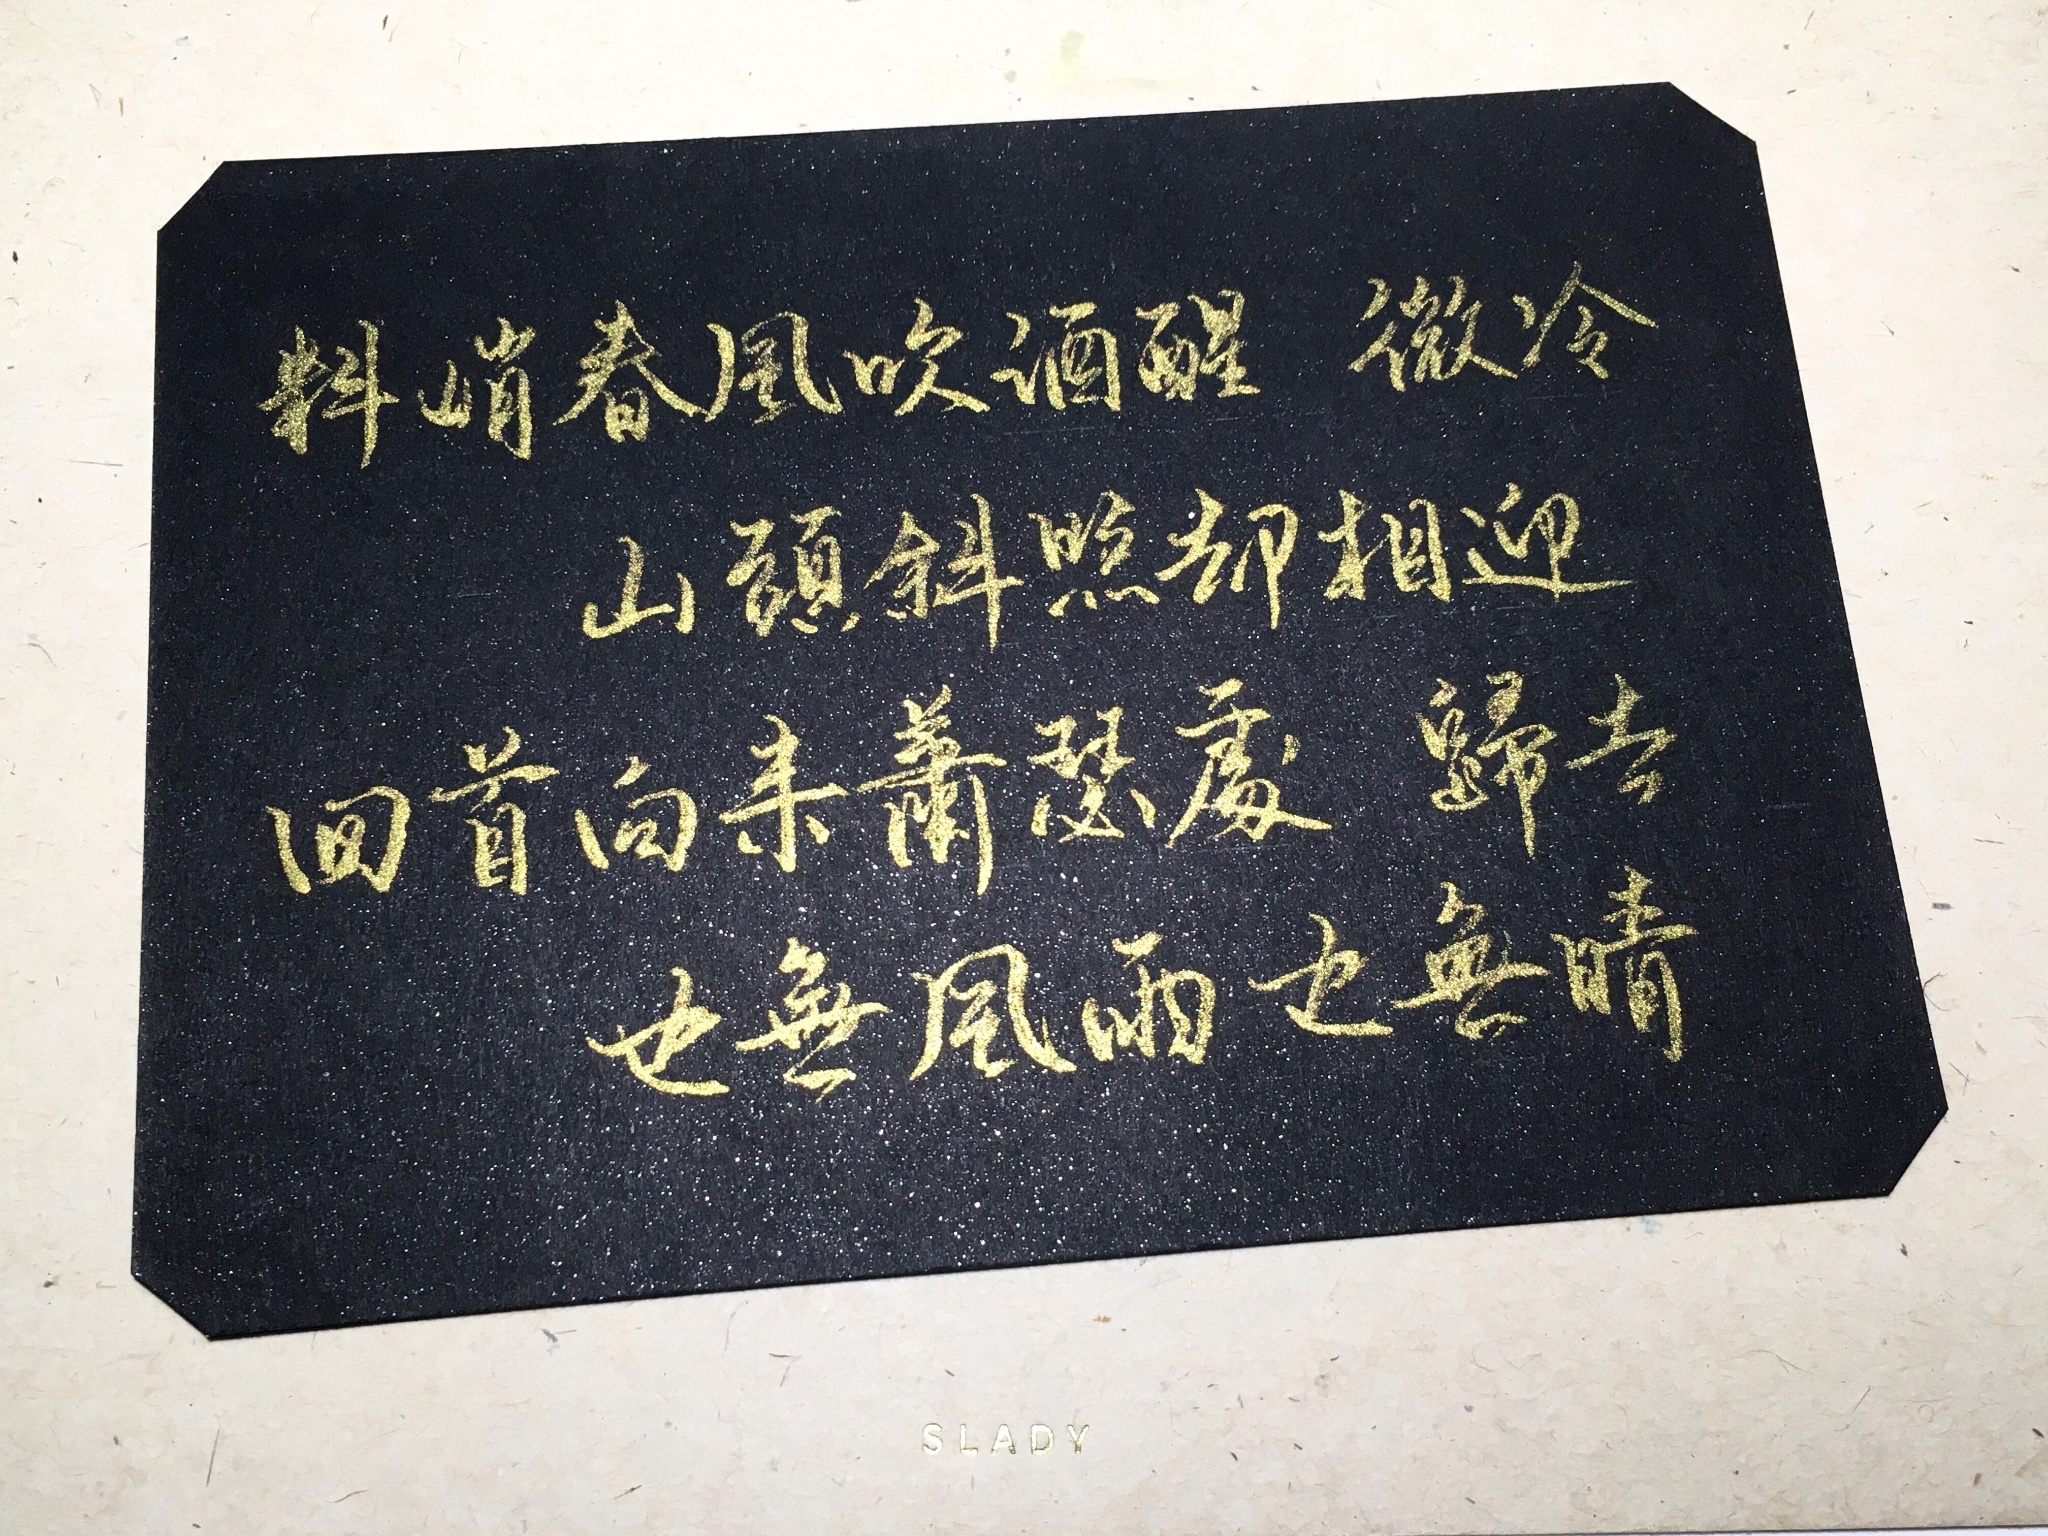 料峭春風吹酒醒 微冷
山頭斜照却相迎
回首向来蕭瑟處 歸去
也無風雨也無晴
SLADY